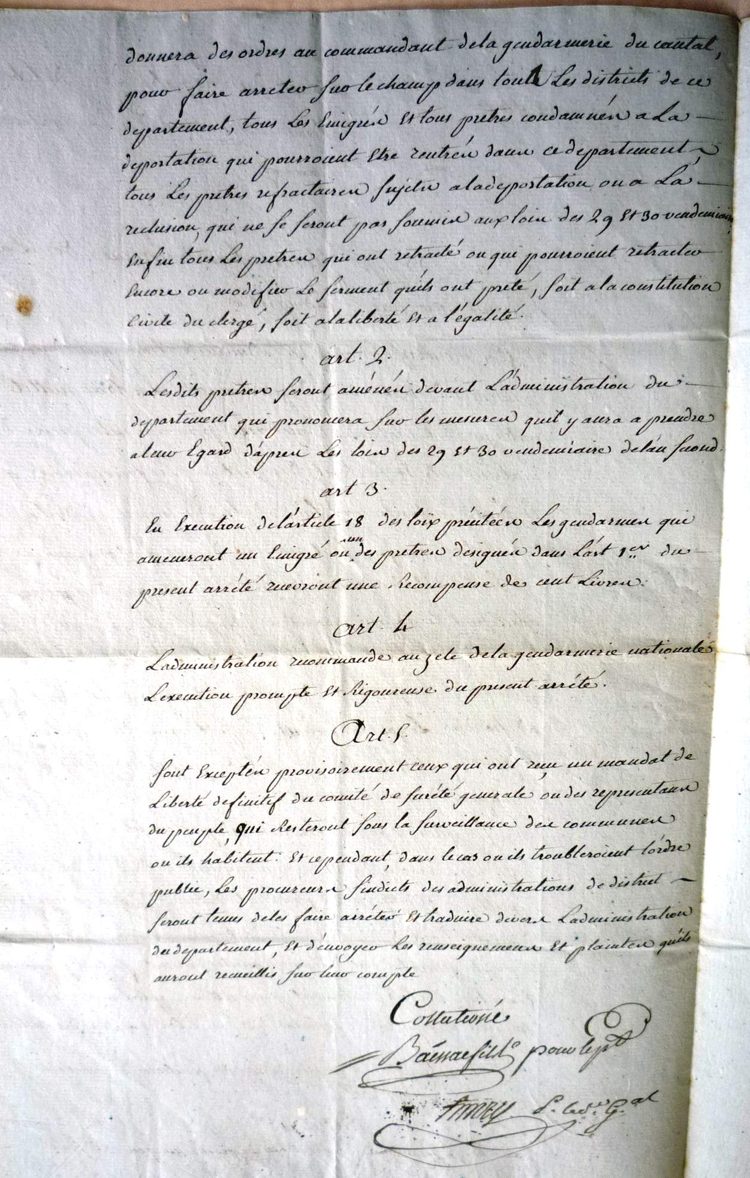 donnera des ordres au commandant de la gendarmerie du cantal,
pour faire arreter sur le champ dans tous Les districts de ce
departement, tous Les Emigrés Et tous pretres condamnés a La
deportation qui pourroient Etre rentrés dans ce departement
tous Les pretres refractaires sujets a la deportation ou a La
reclusion, qui ne se seront pas soumis aux loix des 29 Et 30 vendemiaire
Enfin tous Les pretres qui ont retracté ou qui pourroient retracter
Encore ou modifier Le serment qu'ils ont preté, soit a la constitution
Civile du clergé, soit a la liberté Et a l'égalité.
art. 2.
Lesdits pretres seront aménés devant L'administration du
departement qui prononcera sur les mesures quil y aura a prendre
a leur Egard d'aprés Les loix des 29 Et 30 vendemiaire de l'an second.
art 3.
En Execution de l'article 18 des loix précitées Les gendarmes qui
ameneront un Emigré ou un des pretres désignés dans L'art 1er du
present arrété recevront une Recompense de cent Livres.
art. 4
L'administration recommande au zele de la gendarmerie nationale
L'execution prompte Et Rigoureuse du present arrété.
Art. 5
sont Exceptés provisoirement ceux qui ont reçu un mandat de
Liberté definitif du comité de sureté generale ou des representans
du peuple, qui Resteront sous la surveillance des communes
ou ils habitent. Et cependant, dans le cas ou ils troubleroient l'ordre
public, Les procureurs sindics des administrations de district
seront tenus de les faire arréter Et traduire devers L'administration
du departement, Et d'envoyer Les renseignemens Et plaintes qu'ils
auront recueillis sur leur compte
Collationné
pour le pdt